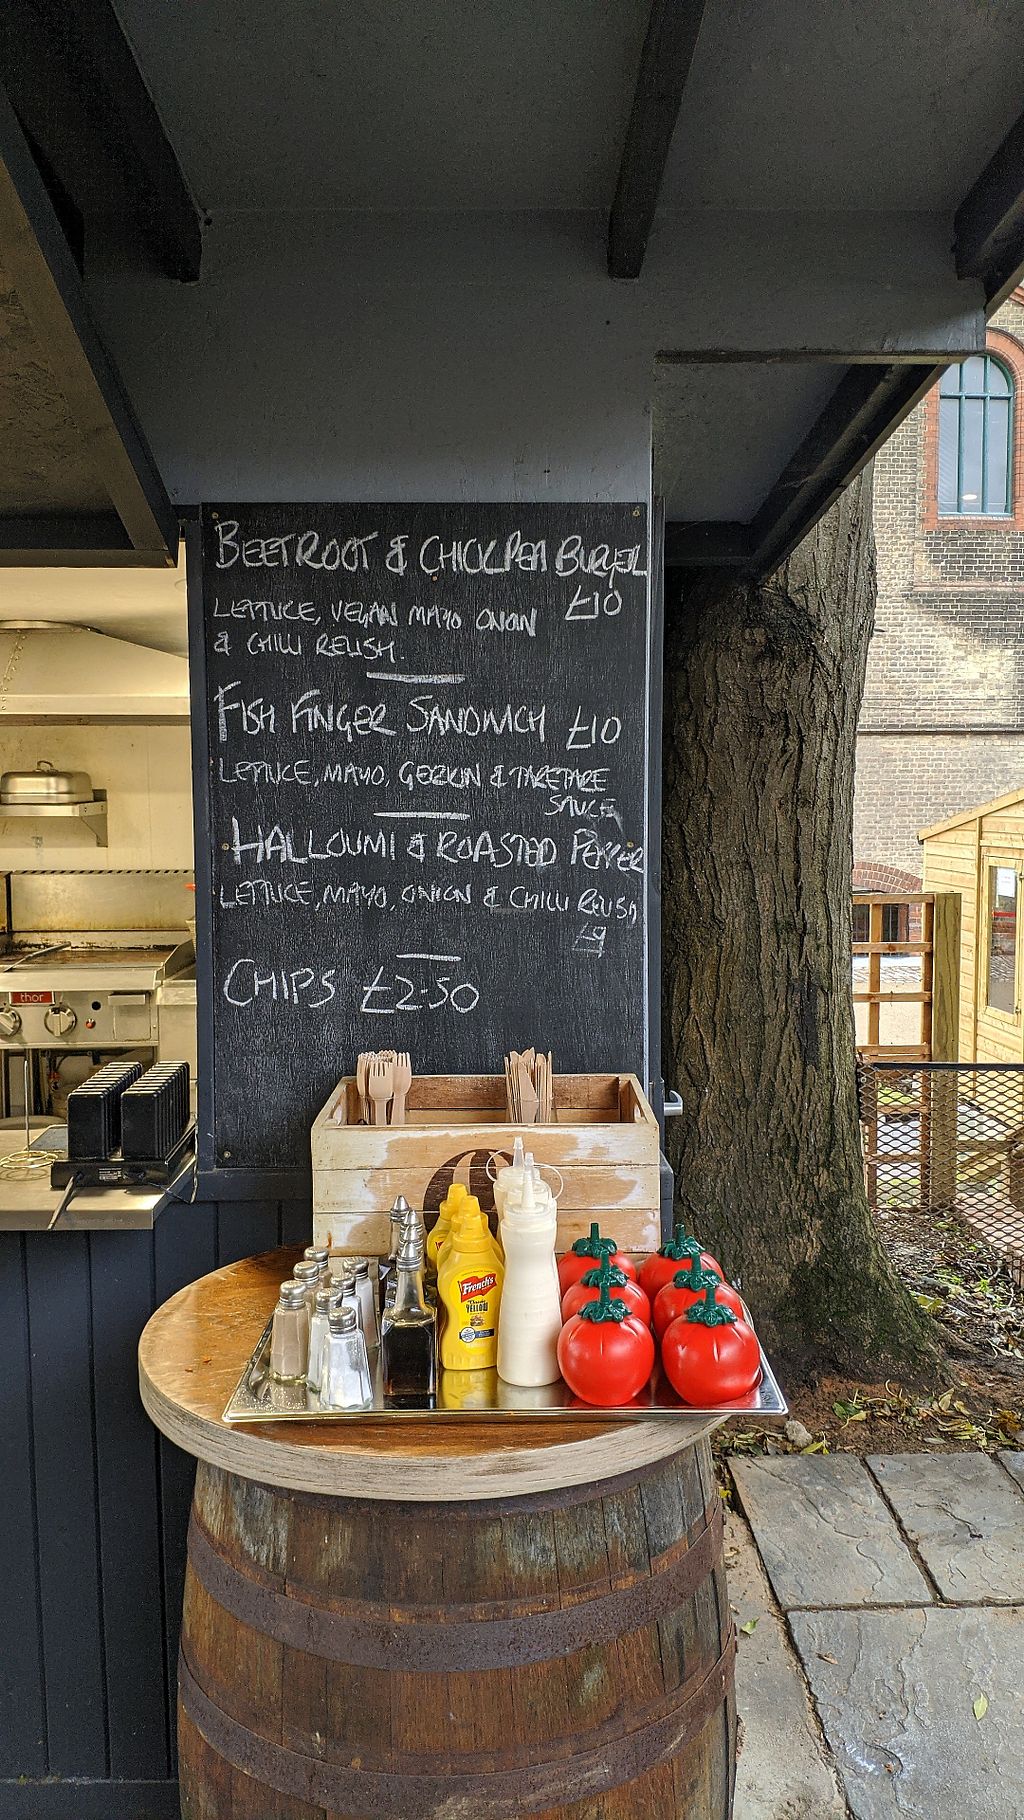 BEETROOT & CHICKPEA BURGER
£10
LETTUCE, VEGAN MAYO ONION
& CHILLI RELISH.
FISH FINGER SANDWICH £10
LETTUCE, MAYO, GERKIN & TARETARE
SAUCE
HALLOUMI & ROASTED PEPPER
LETTUCE, MAYO, ONION & CHILLI RELISH
£9
CHIPS £2.50
thor
French's
Classic
YELLOW